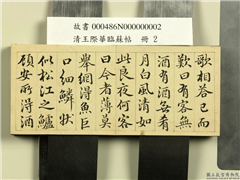 故書 000486N000000002
清王際華臨蘇帖 冊 2
歌相答已而
歎曰有客無
酒有酒無肴
月白風清如
此良夜何客
曰今者薄莫
舉網得魚巨
口細鱗狀
似松江之鱸
顧安所得酒